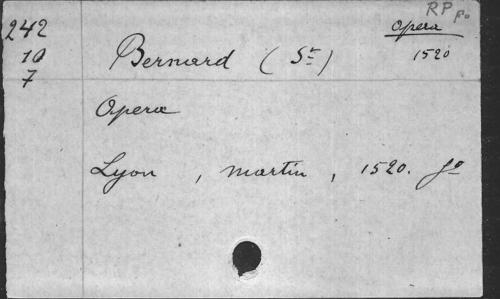 RP fo
242
10
7
Opera
1520
Bernard (St)
Opera
Lyon, Martin, 1520. fo